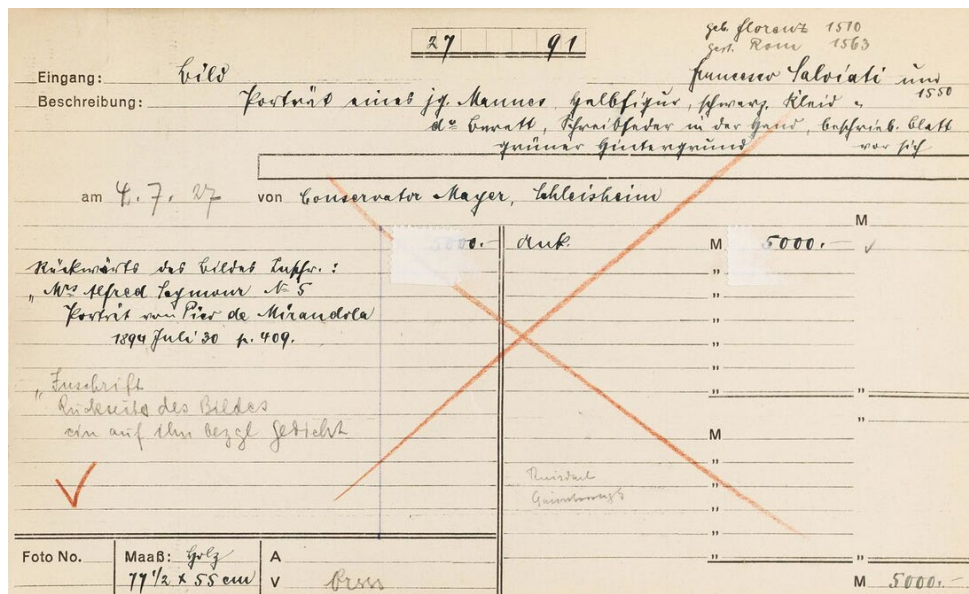 27 91
geb. Florenz 1510
gest. Rom 1563
Eingang: Bild Francesco Salviati um 1550
Beschreibung: Porträt eines jg. Mannes, Halbfigur, schwarz. Kleid u
do Barett, Schreibfeder in der Hand, beschrieb. Blatt
grüner Hintergrund vor sich
am 4. 7. 27 von Conservator Mayer, Schleisheim
M
5000.- Ank. M 5000.-
Rückwärts des Bildes Inschr.:
„Mrs Alfred Seymour No 5
Porträt von Pico de Mirandola
1894 Juli 30 p. 409.
„Inschrift
Rückseite des Bildes
ein auf ihn bezgl Gedicht
M
Ruisdael
Foto No. Maaß: Holz A
77 1/2 x 55 cm V M 5000.-